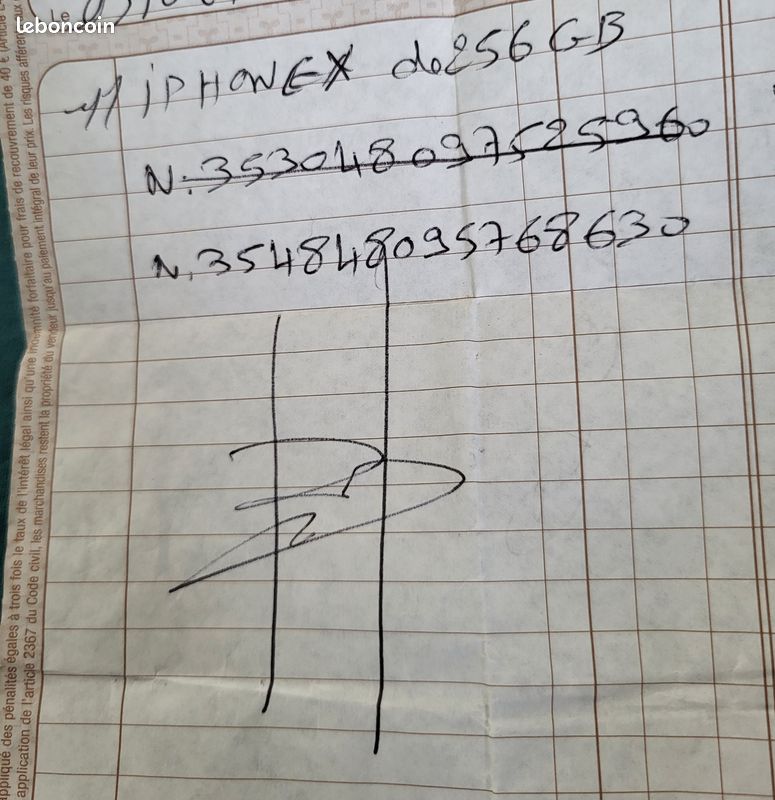 leboncoin
1/ iPHONEX de 256 GB
N: 353048097525960
N. 354848095768630
appliqué des pénalités égales à trois fois le taux de l'intérêt légal ainsi qu'une indemnité forfaitaire pour frais de recouvrement de 40 € (Article
application de l'article 2367 du Code civil, les marchandises restent la propriété du vendeur jusqu'au paiement intégral de leur prix. Les risques afférents